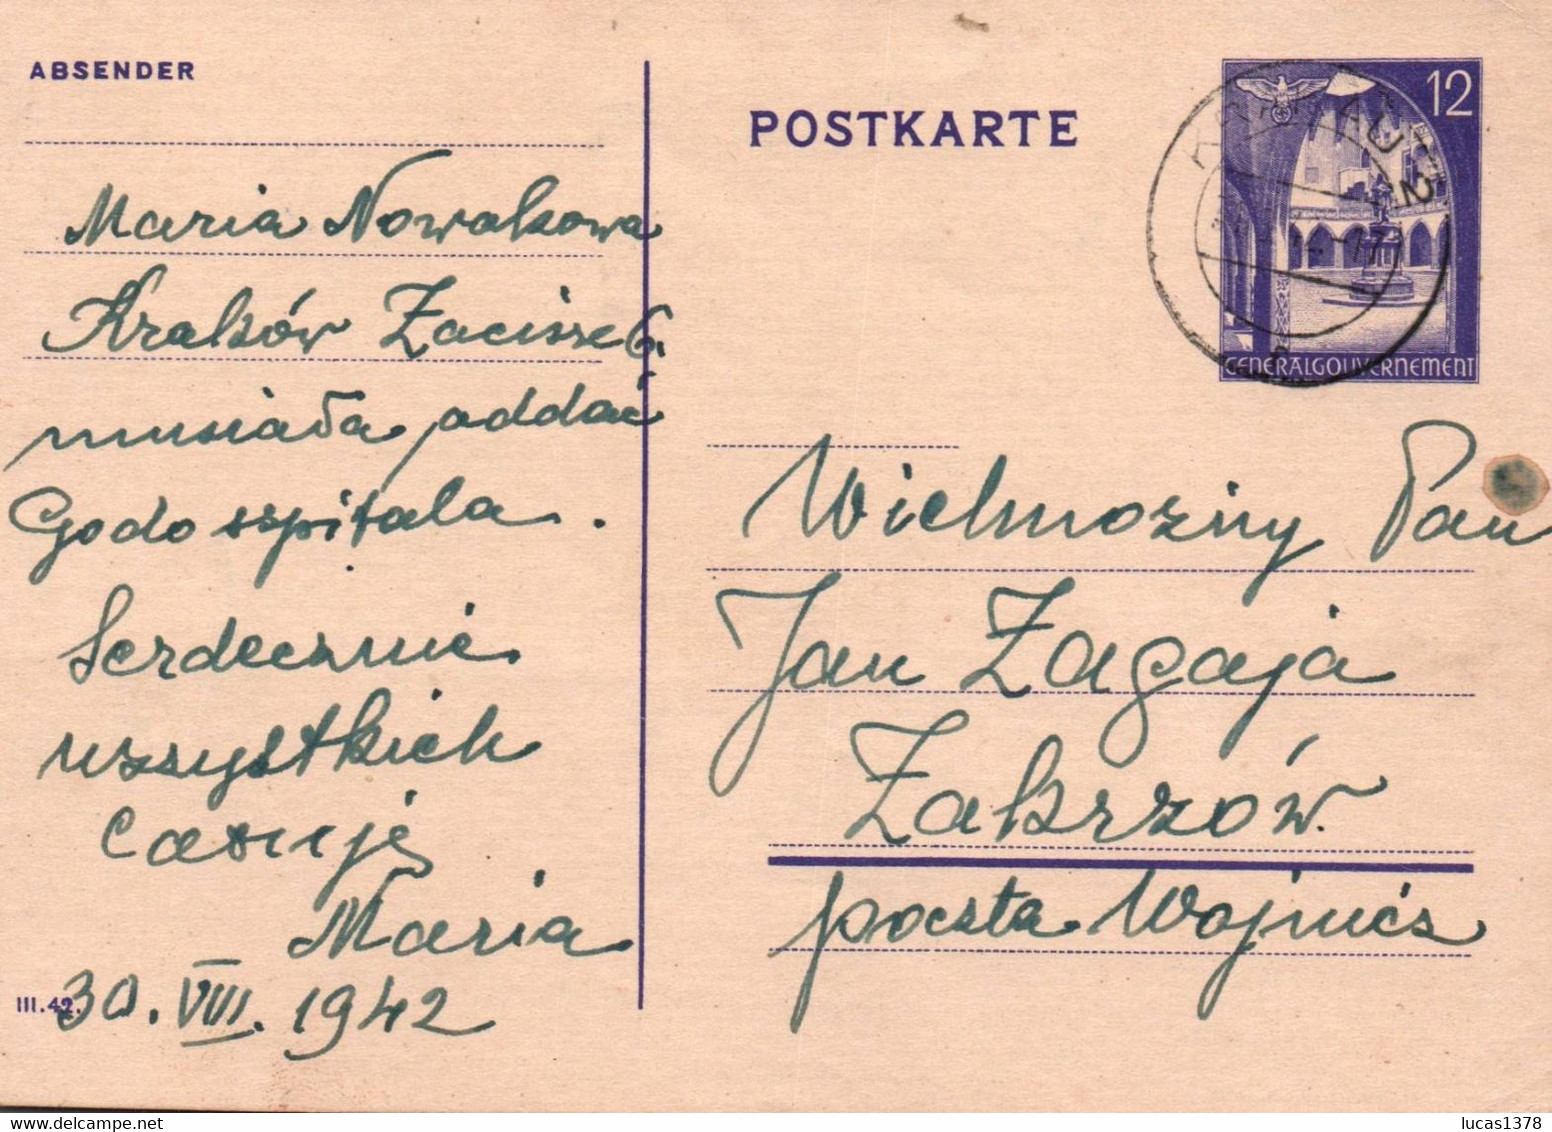 ABSENDER
Maria Nowakowa
Kraków Zacisze 6.
musiała oddać
Go do szpitala.
Serdecznie
wszystkich
całuję
Maria
30. VIII. 1942
III.42.
POSTKARTE
12
2
GENERALGOUVERNEMENT
Wielmożny Pan
Jan Zagaja
Zakrzów.
poczta Wojnicz
lucas1378